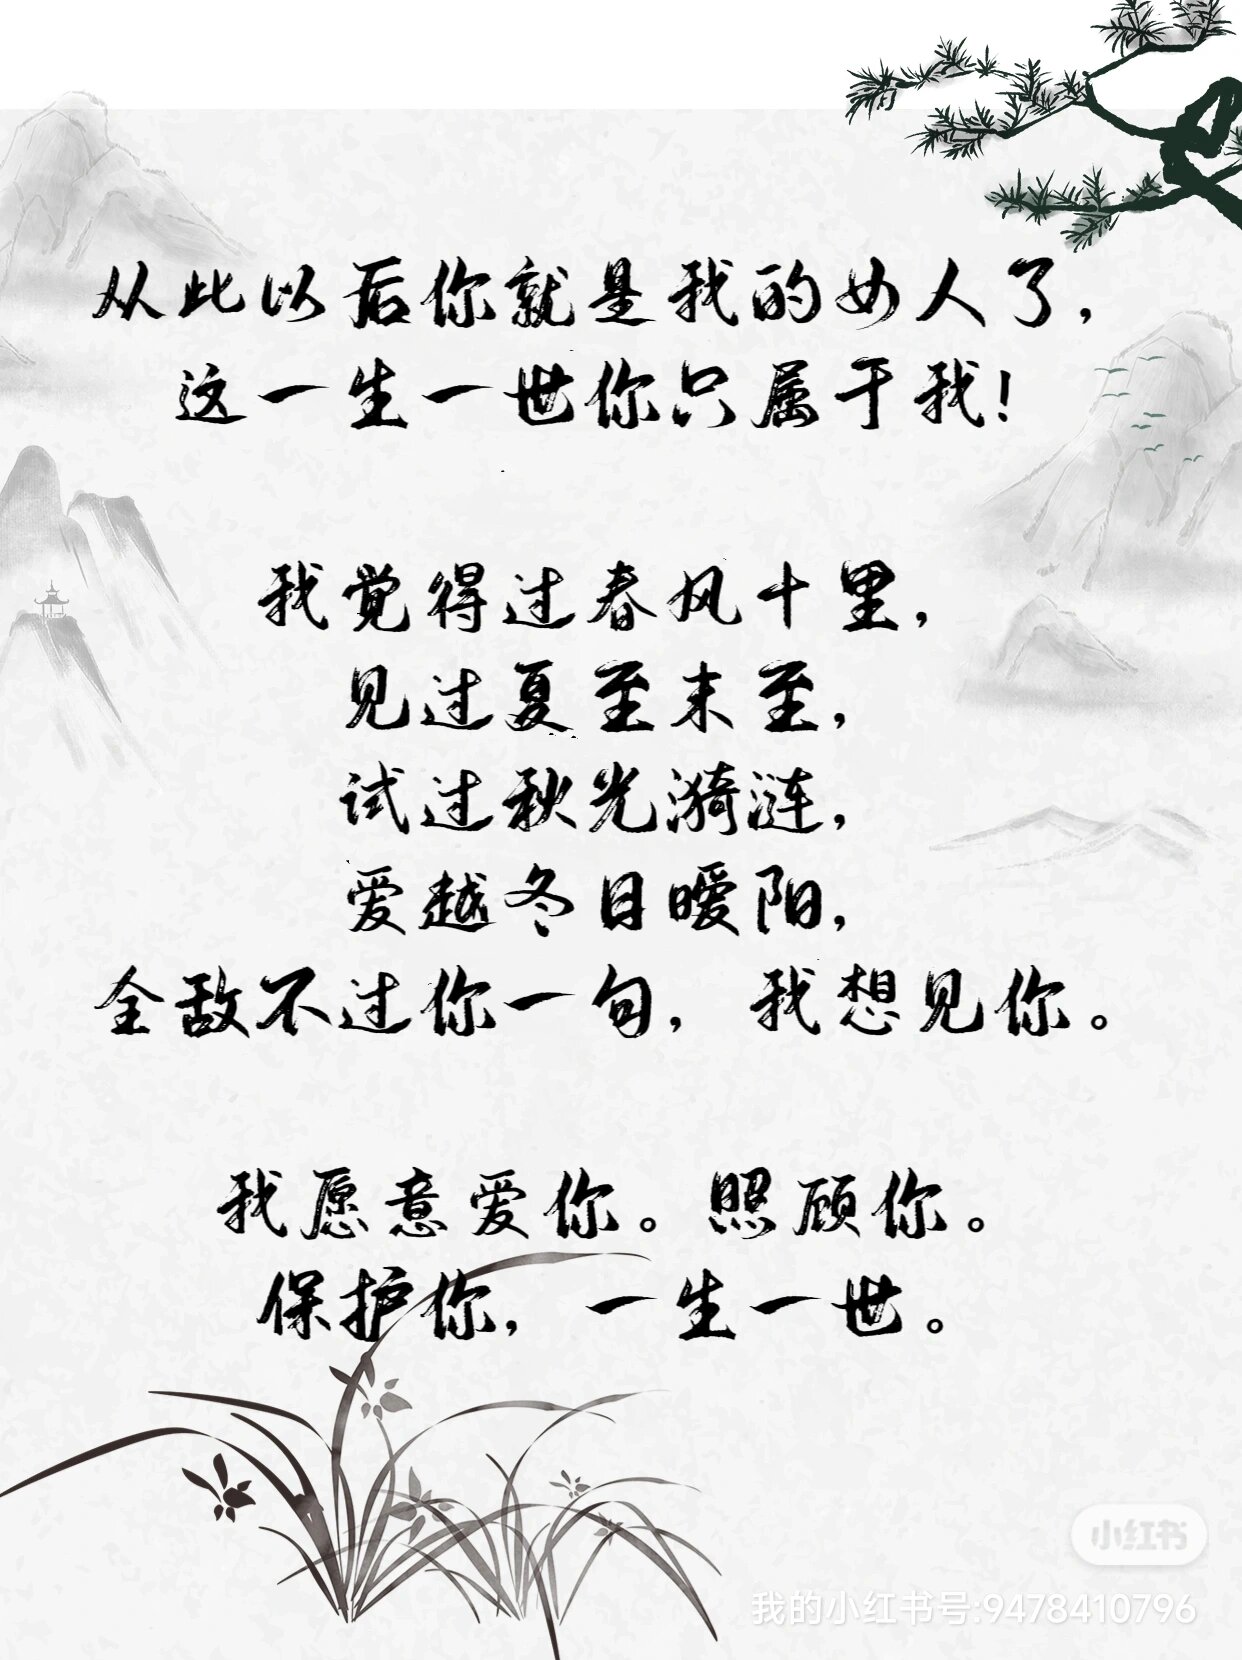 从此以后你就是我的女人了，
这一生一世你只属于我！
我觉得过春风十里，
见过夏至末至，
试过秋光漪涟，
爱越冬日暧阳，
全敌不过你一句，我想见你。
我愿意爱你。照顾你。
保护你，一生一世。
小红书
我的小红书号:9478410796